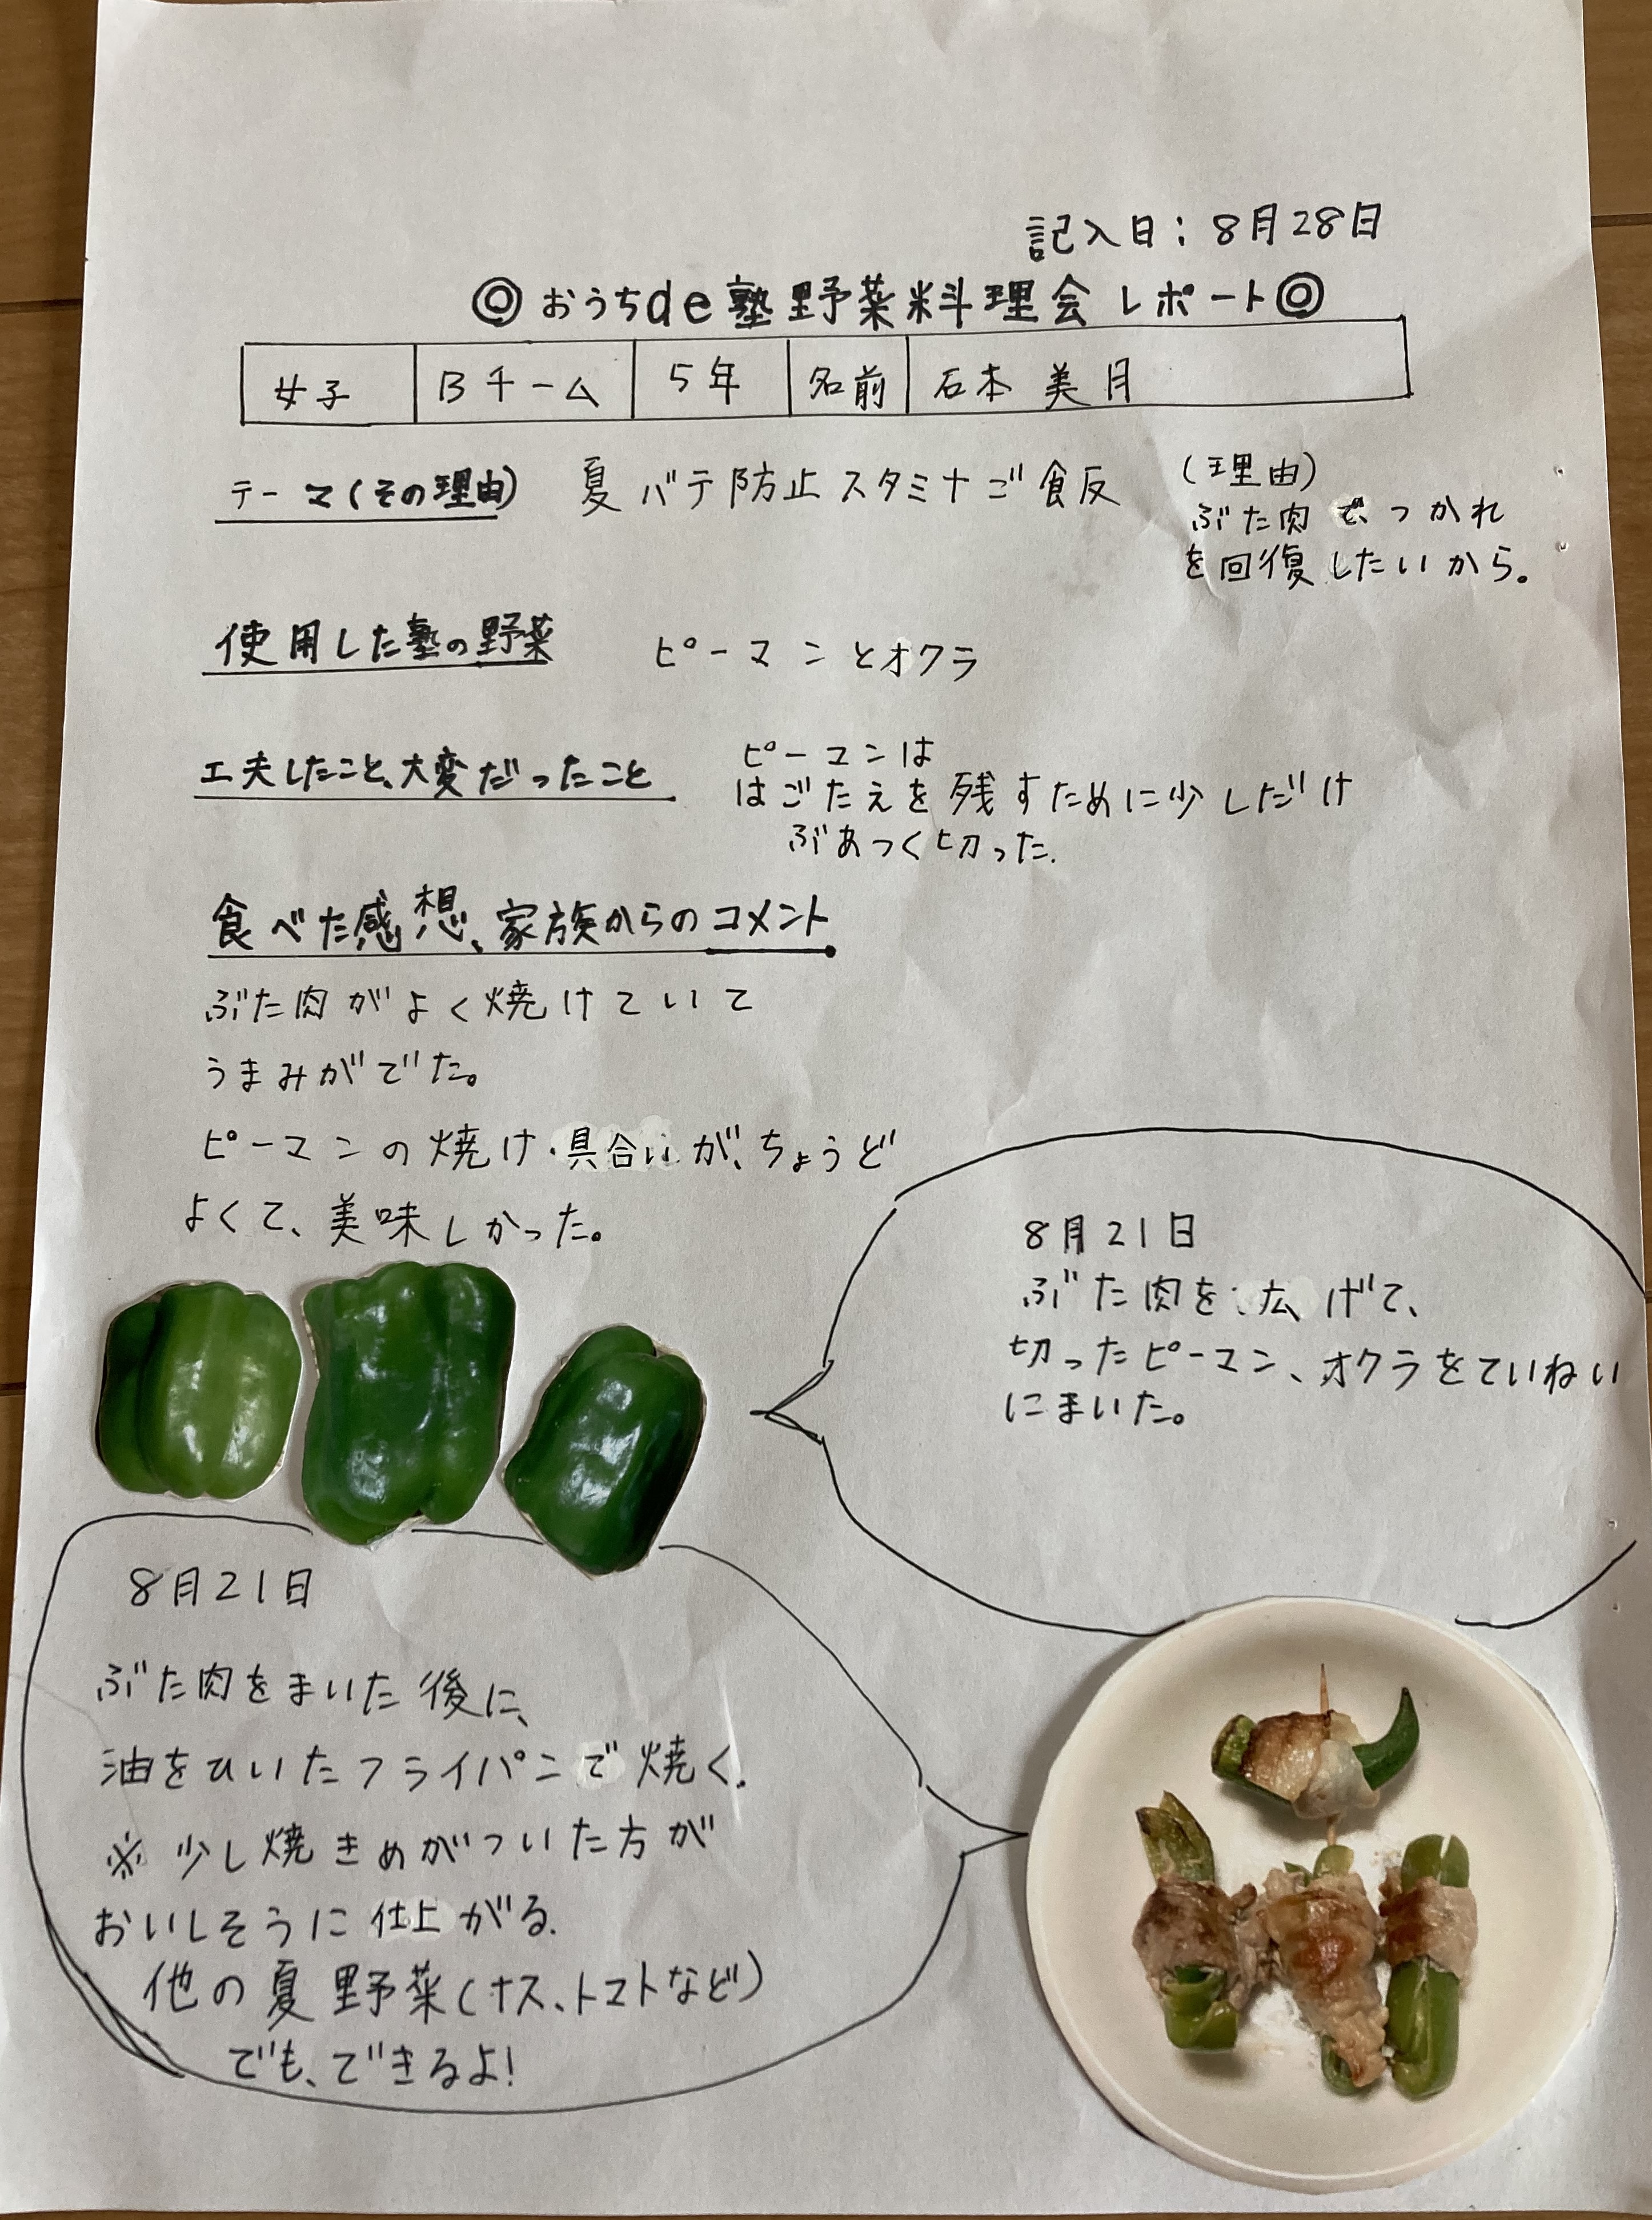 記入日：8月28日
◎おうちde塾野菜料理会レポート◎
女子 Bチーム 5年 名前 石本 美月
テーマ(その理由) 夏バテ防止スタミナご飯
(理由)
ぶた肉で、つかれ
を回復したいから。
使用した塾の野菜 ピーマンとオクラ
工夫したこと、大変だったこと
ピーマンは
はごたえを残すために少しだけ
ぶあつく切った.
食べた感想、家族からのコメント
ぶた肉がよく焼けていて
うまみがでた。
ピーマンの焼け具合いが、ちょうど
よくて、美味しかった。
8月21日
ぶた肉を広げて、
切ったピーマン、オクラをていねい
にまいた。
8月21日
ぶた肉をまいた後に、
油をひいたフライパンで焼く.
※少し焼きめがついた方が
おいしそうに仕上がる.
他の夏野菜(ナス、トマトなど)
でも、できるよ!